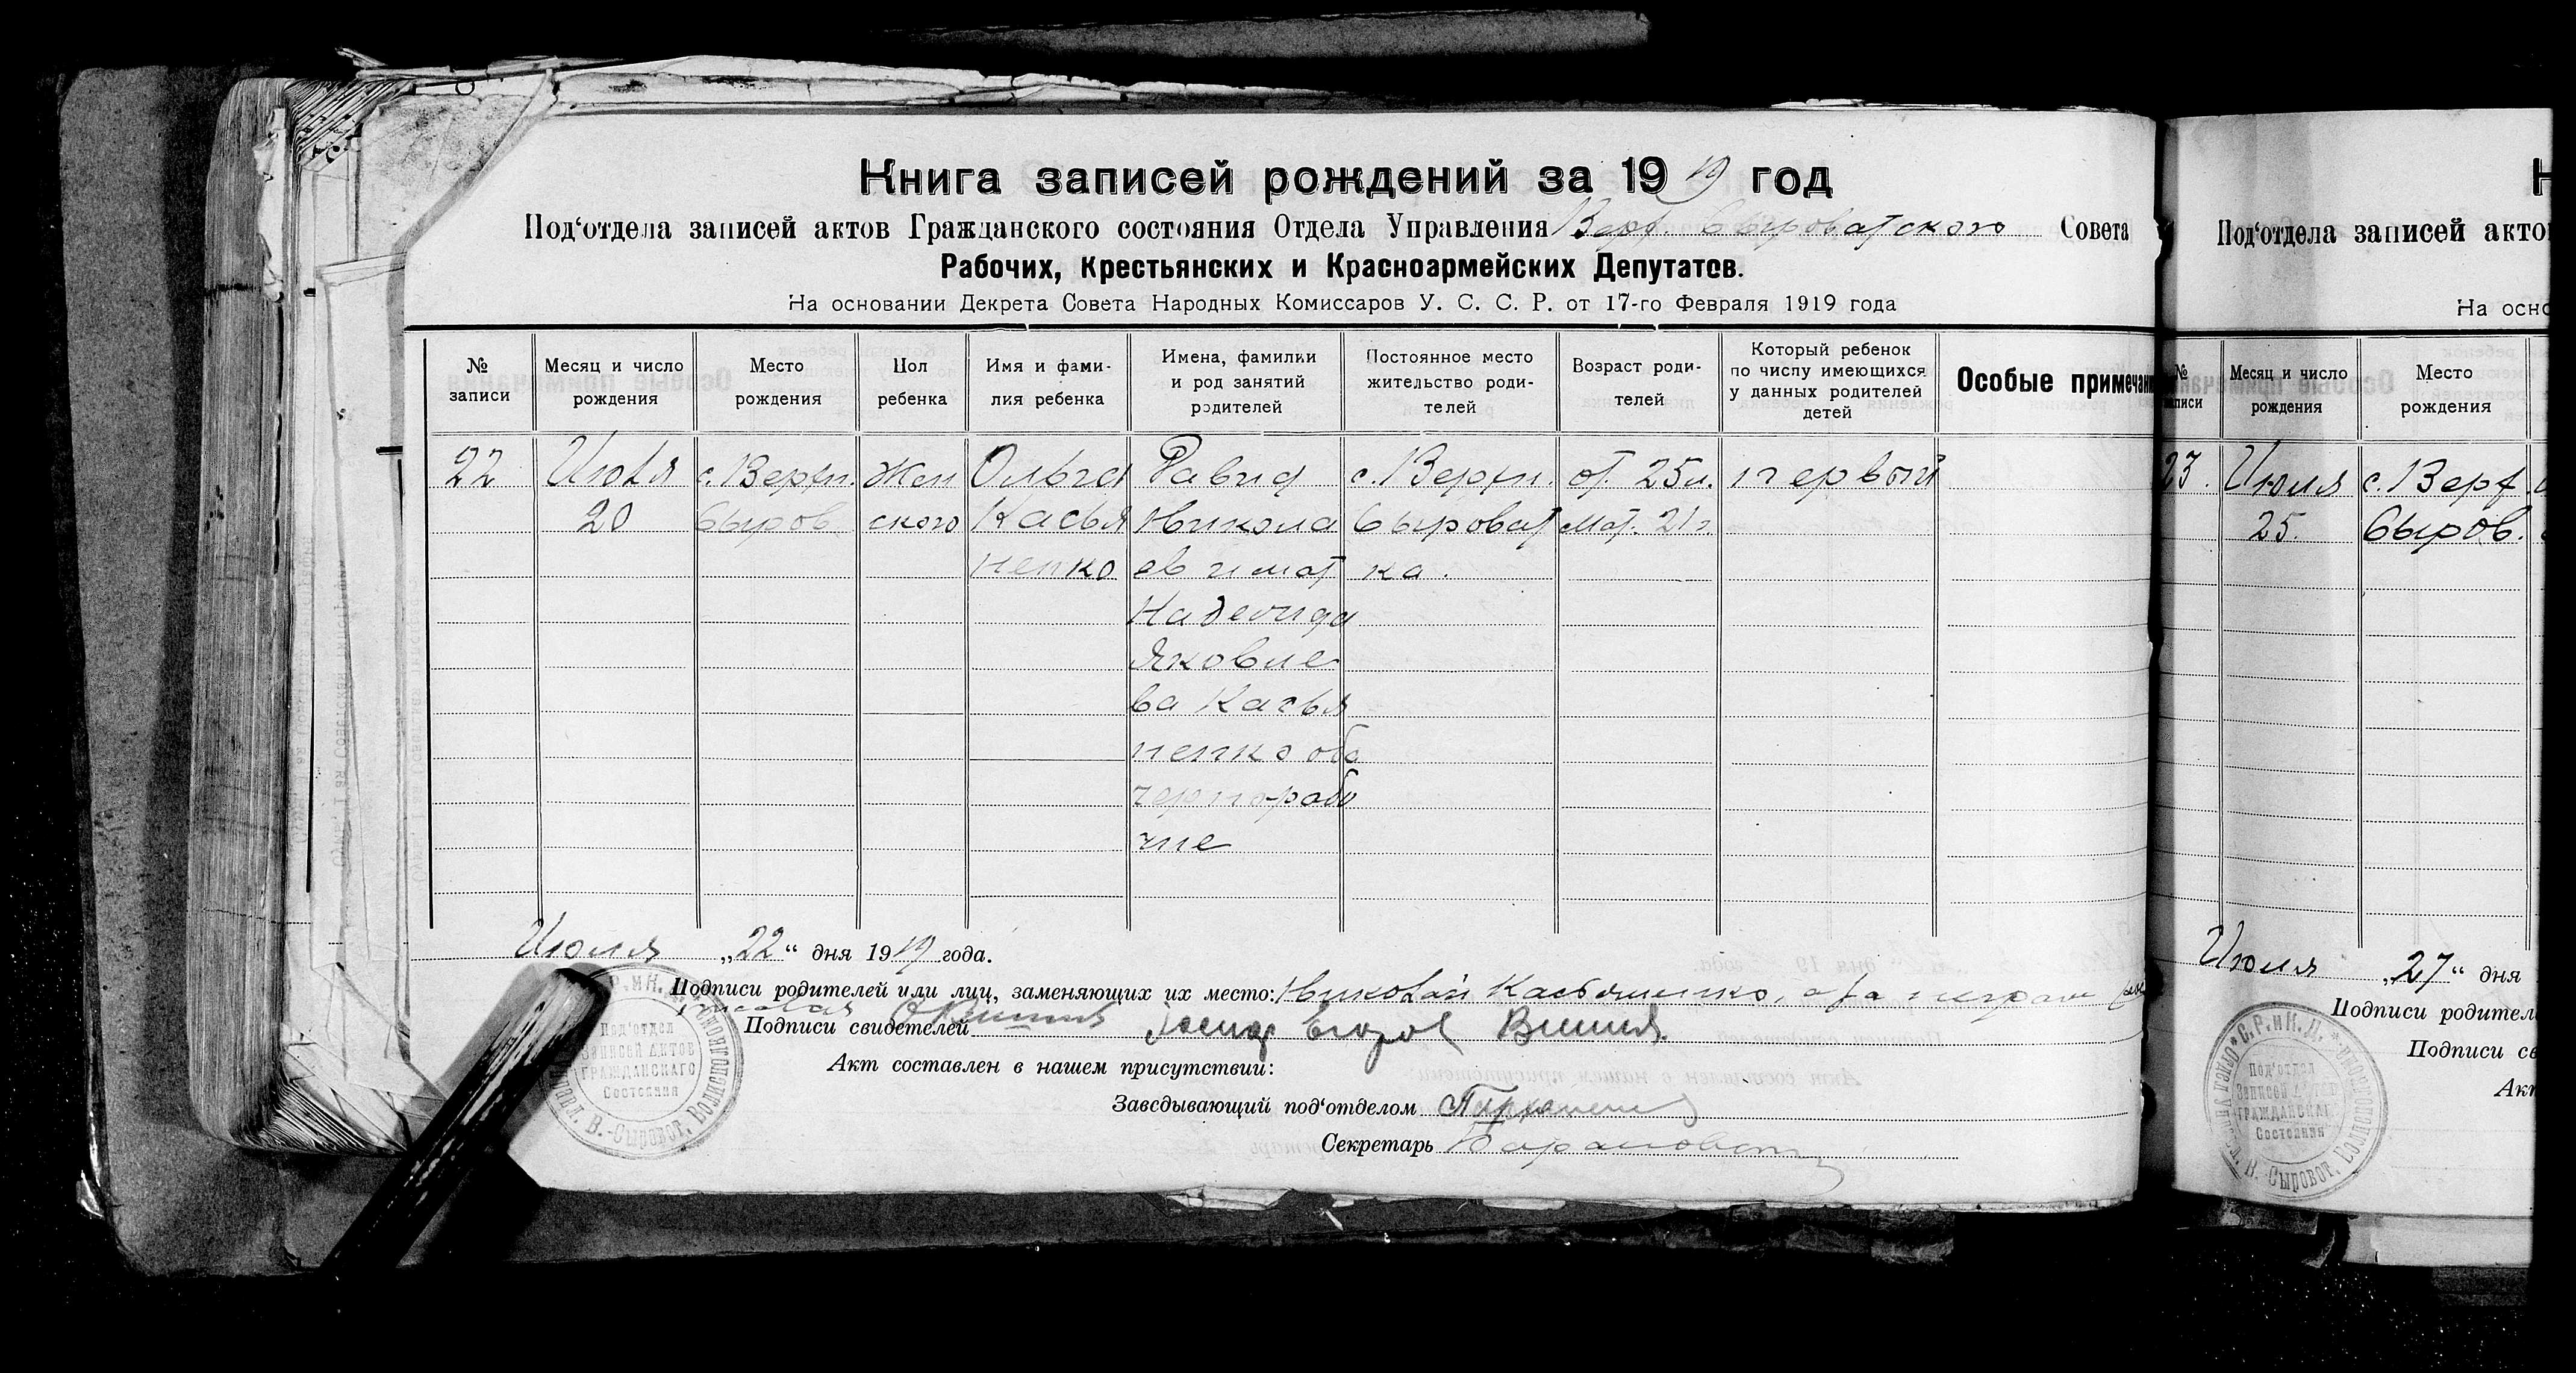 Книга записей рождений за 1919 год
Под‘отдела записей актов Гражданского состояния Отдела Управления Верх. Сыроватского Совета
Рабочих, Крестьянских и Красноармейских Депутатов.
На основании Декрета Совета Народных Комиссаров У. С. С. Р. от 17-го Февраля 1919 года
№ записи
Месяц и число рождения
Место рождения
Пол ребенка
Имя и фами-
лия ребенка
Имена, фамилии
и род занятий
родителей
Постоянное место
жительство роди-
телей
Возраст роди-
телей
Который ребенок
по числу имеющихся
у данных родителей
детей
Особые примечан
22 Июля с. Верхн. Жен Ольга Николай с. Верхн. от. 25 л. первый
20 Сыров ского Касья Никола Сыроват мат. 21 г.
ненко ев и мат ка.
Надежда
Яковле
ва Касья
ненко оба
чернорабо
чие
Июля „22“ дня 1919 года.
Подписи родителей или лиц, заменяющих их место: Николай Касьяненко, а за
Подписи свидетелей
Акт составлен в нашем присутствии:
Заведывающий под‘отделом
Секретарь
Под‘отдел
Записей Актов
Гражданскаго
Состояния
В.-Сыроват. Волисполкома
Под‘отдела записей акто
На осно
№ писи
Месяц и число рождения
Место рождения
23. Июля с. Верх.
25. Сыров.
Июля „27“ дня
Подписи родител
Подписи св
Ак
Под‘отдел
Записей Актов
Гражданскаг
Состояния
В.-Сыроват. Волисполкома